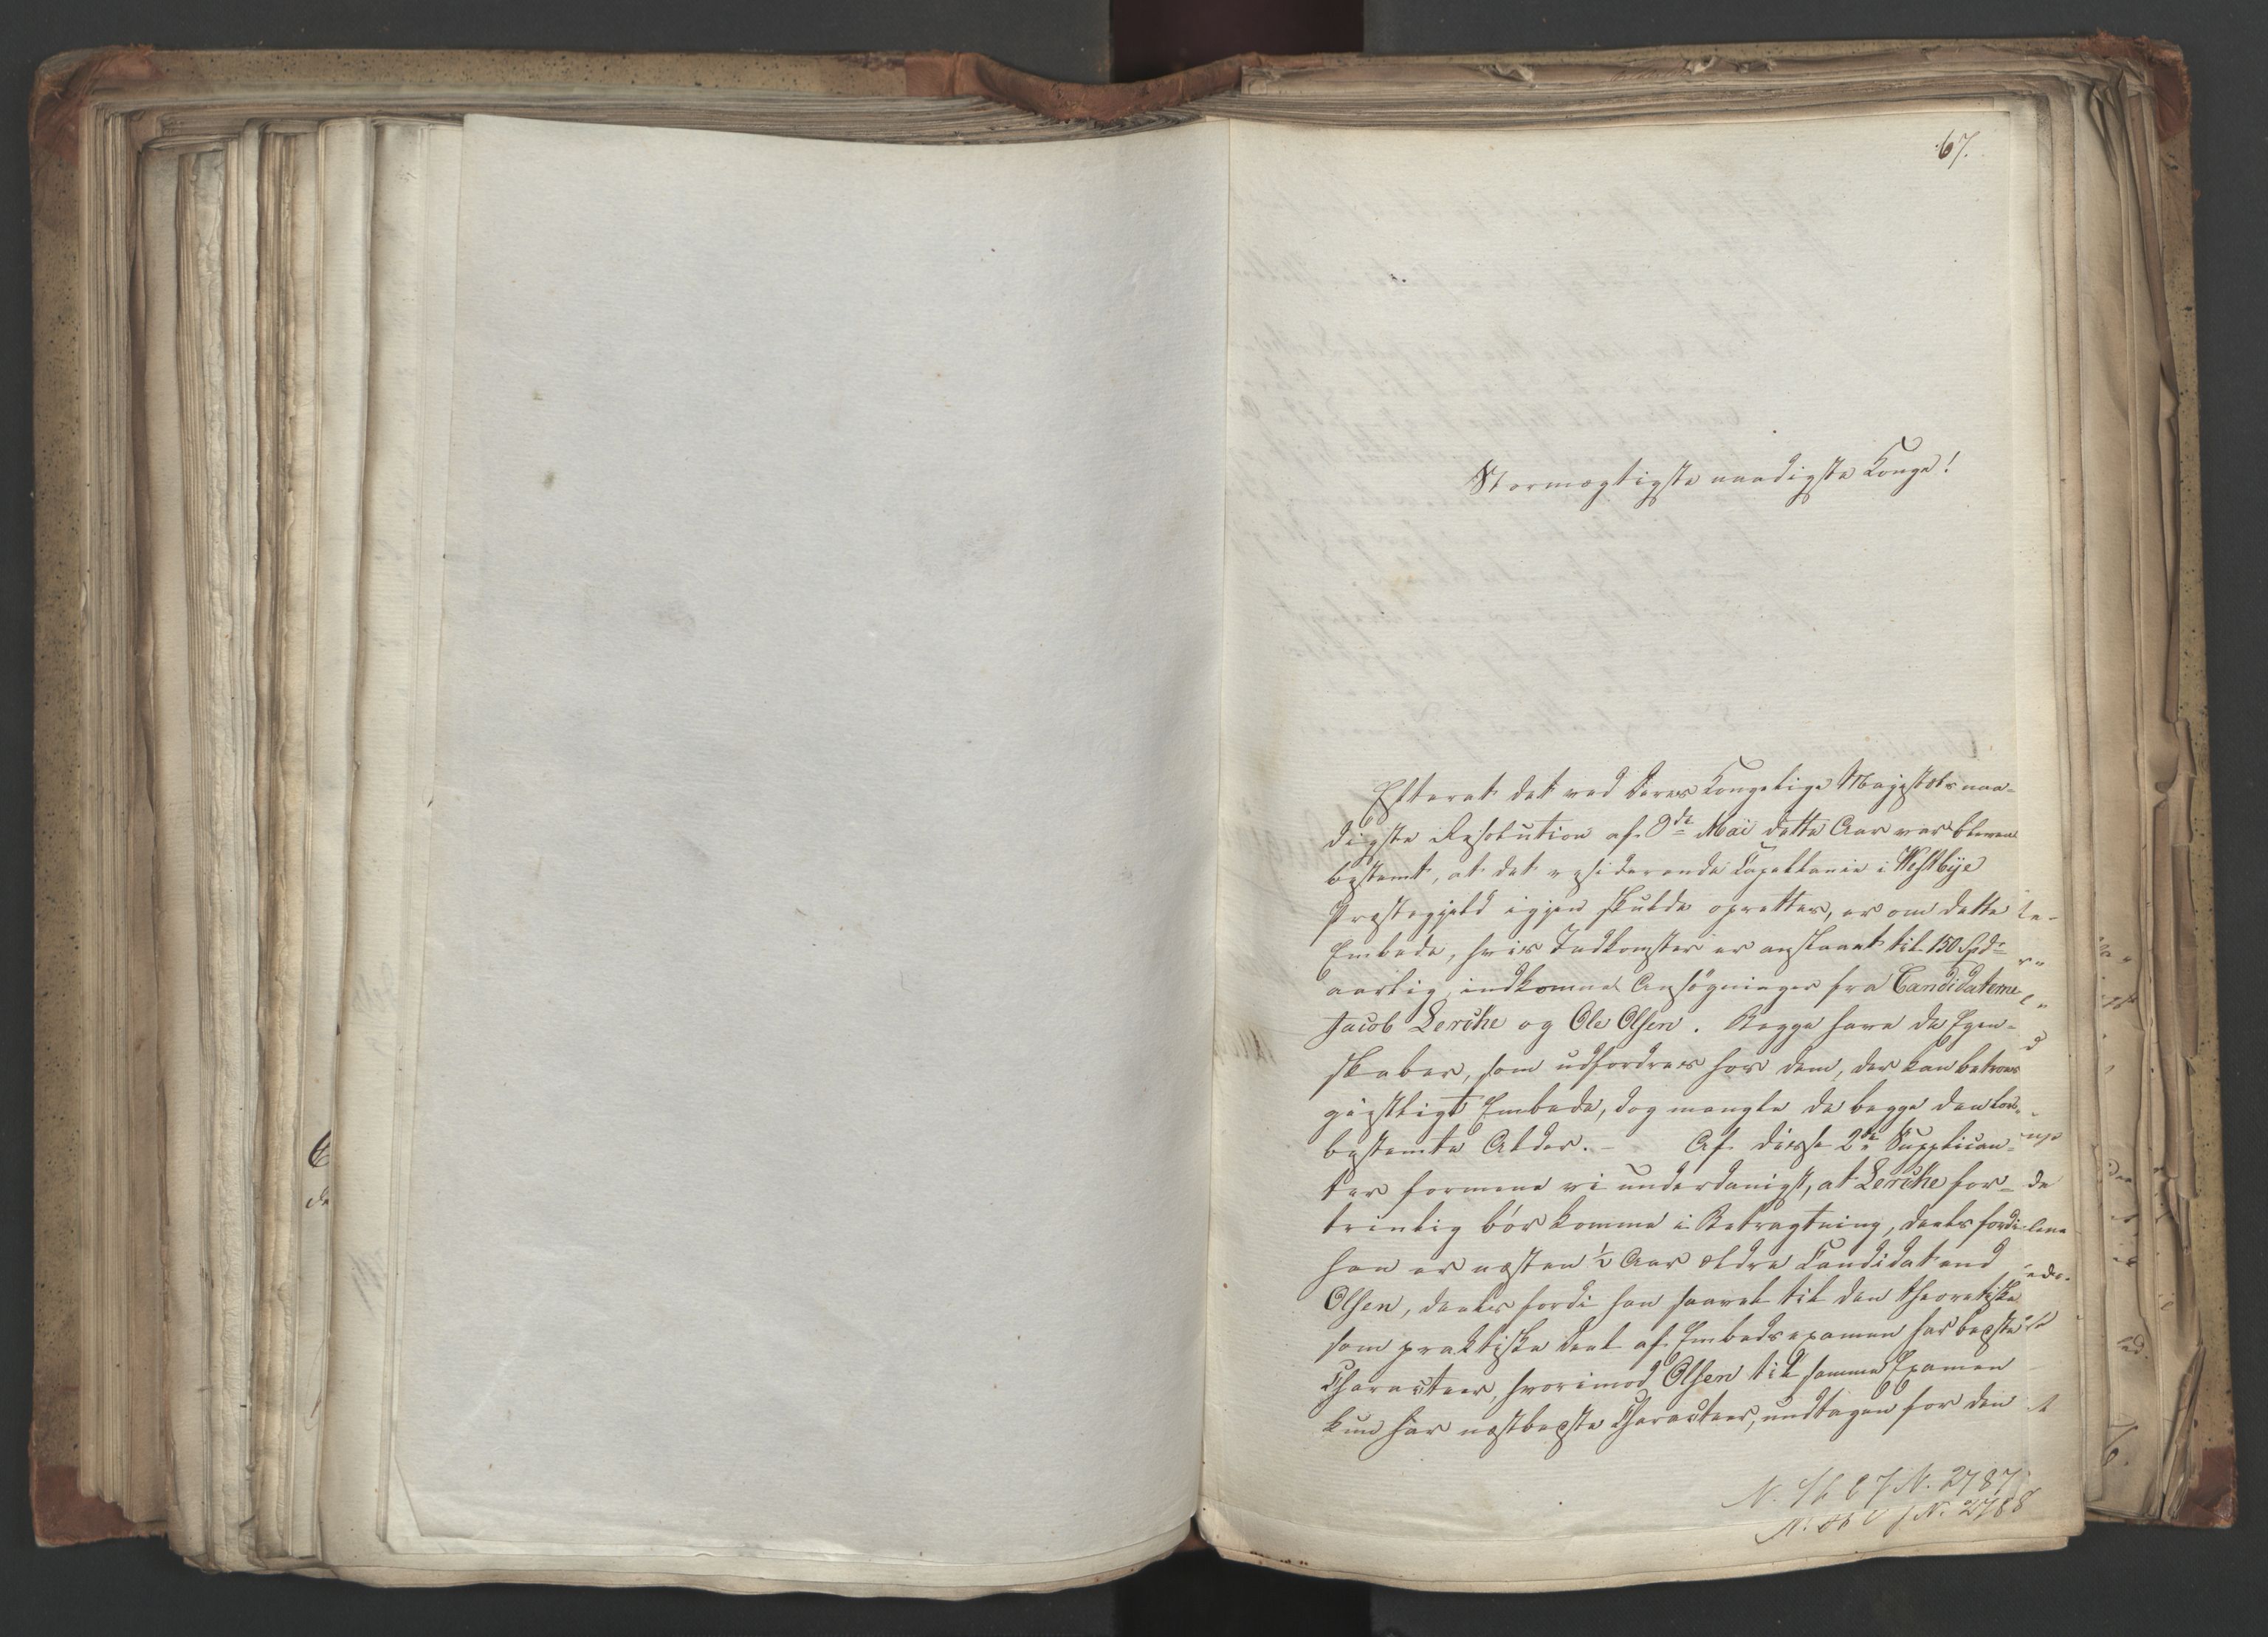 67.
Stormægtigste naadigste Konge!
Efterat det ved Deres Kongelige Majestæts naa-
digste Resolution af 9de Mai dette Aar var bleven
bestemt, at det residerende Capellanie i Westbye
Præstegjeld igjen skulde oprettes, er om dette
Embede, hvis Indkomster er anslaaet til 150 Spdr
aarlig, indkomne Ansøgninger fra Candidaterne
Jacob Lerche og Ole Olsen. Begge have de Egen-
skaber, som udfordres hos dem, der kan betroes
geistligt Embede, dog mangle de begge den lov-
bestemte Alder. – Af disse 2de Supplican-
ter formene vi underdanigst, at Lerche for-
trinlig bör komme i Betragtning, deels fordi
han er næsten ½ Aar ældre Candidat end
Olsen, deels fordi han saavel til den theoretiske
som praktiske Deel af Embedsexamen har bedste
Characteer, hvorimod Olsen til samme Examen
kun har næstbedste Characteer, undtagen for den
N. 2787
N. 2788